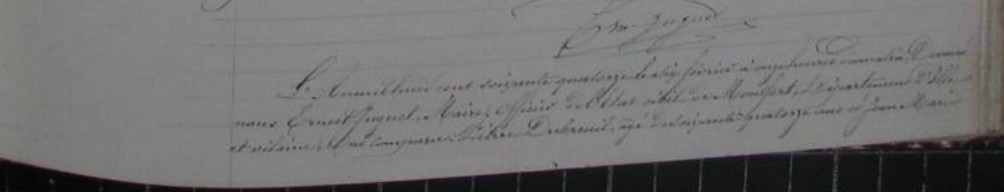 Em. Juguet
L'An mil huit cent soixante quatorze le dix février à onze heures du matin, Devant
nous Ernest Juguet, Maire, officier de l'état civil de Montfort, Département d'Ille
et vilaine, ont comparu Pierre Dubreuil, agé de soixante quatorze ans et Jean Marie